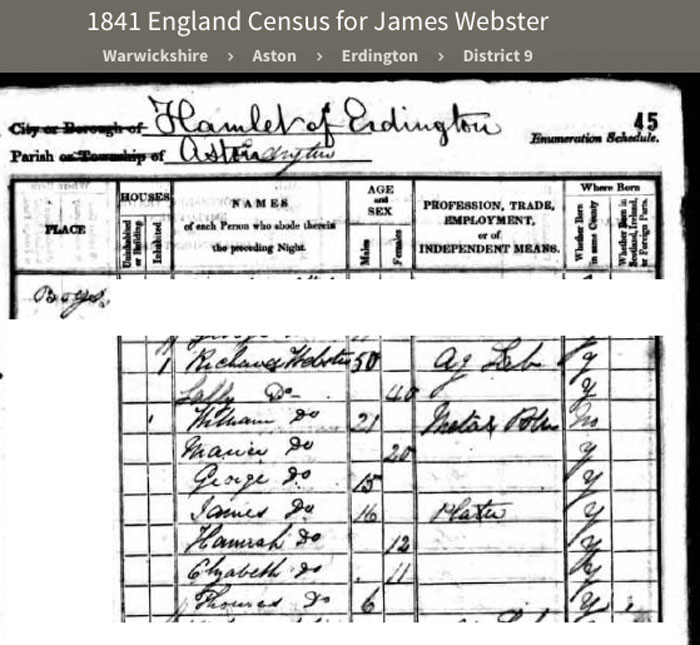 1841 England Census for James Webster
Warwickshire > Aston > Erdington > District 9
City or Borough of Hamlet of Erdington
45
Enumeration Schedule.
Parish or Township of Aston
PLACE
HOUSES
Uninhabited or Building
Inhabited
NAMES
of each Person who abode therein
the preceding Night.
AGE
and
SEX
Males
Females
PROFESSION, TRADE,
EMPLOYMENT,
or of
INDEPENDENT MEANS.
Where Born
Whether Born in same County
Whether Born in Scotland, Ireland, or Foreign Parts.
1 Richard Webster 50 Ag Lab y
Sally Do 40 y
William Do 21 No
Maria Do 20 y
George Do 15 y
James Do 16 y
Hannah Do 12 y
Elizabeth Do 11 y
Thomas Do 6 y